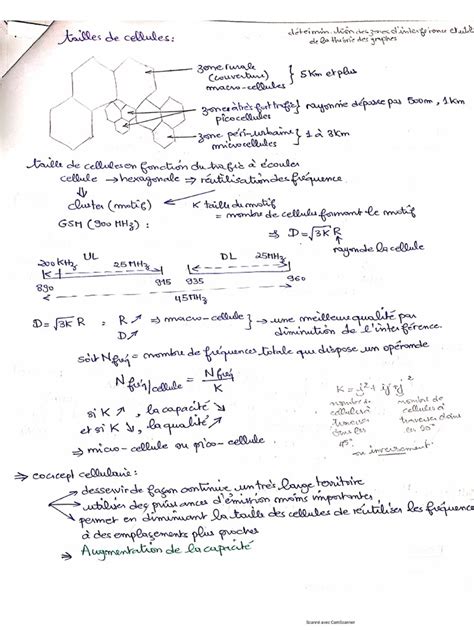 tailles de cellules:
de la théorie des graphes
zone rurale
(couverture)
macro-cellules
} 5Km et plus
zone à très fort trafic
picocellules
} rayon ne dépasse pas 500m, 1km
zone péri-urbaine
microcellules
} 1 à 3Km
taille de cellules en fonction du trafic à écouler
cellule → hexagonale → réutilisation des fréquence
cluster (motif) ← K taille du motif
= nombre de cellules formant le motif
GSM (900 MHz) :
⇒ D = √3K R
rayon de la cellule
200 KHz UL 25 MHz DL 25MHz
890 915 935 960
45MHz
D = √3K R : R ↗ ⇒ macro-cellule } → une meilleure qualité par
D ↗ diminution de l'interférence.
soit Nfréq = nombre de fréquences totale que dispose un opérande
Nfréq/cellule = Nfréq / K
K = i² + ij + j²
nombre de cellules à traverser dans
nombre de cellules à traverser dans
si K ↗, la capacité ↘
et si K ↘, la qualité ↗
ou inversement
⇒ micro-cellule ou pico-cellule.
⇒ concept cellulaire:
desservir de façon continue un très large territoire
utiliser des puissances d'émission moins importantes,
permet en diminuant la taille des cellules de réutiliser les fréquences
à des emplacements plus proches
⇒ Augmentation de la capacité
Scanné avec CamScanner